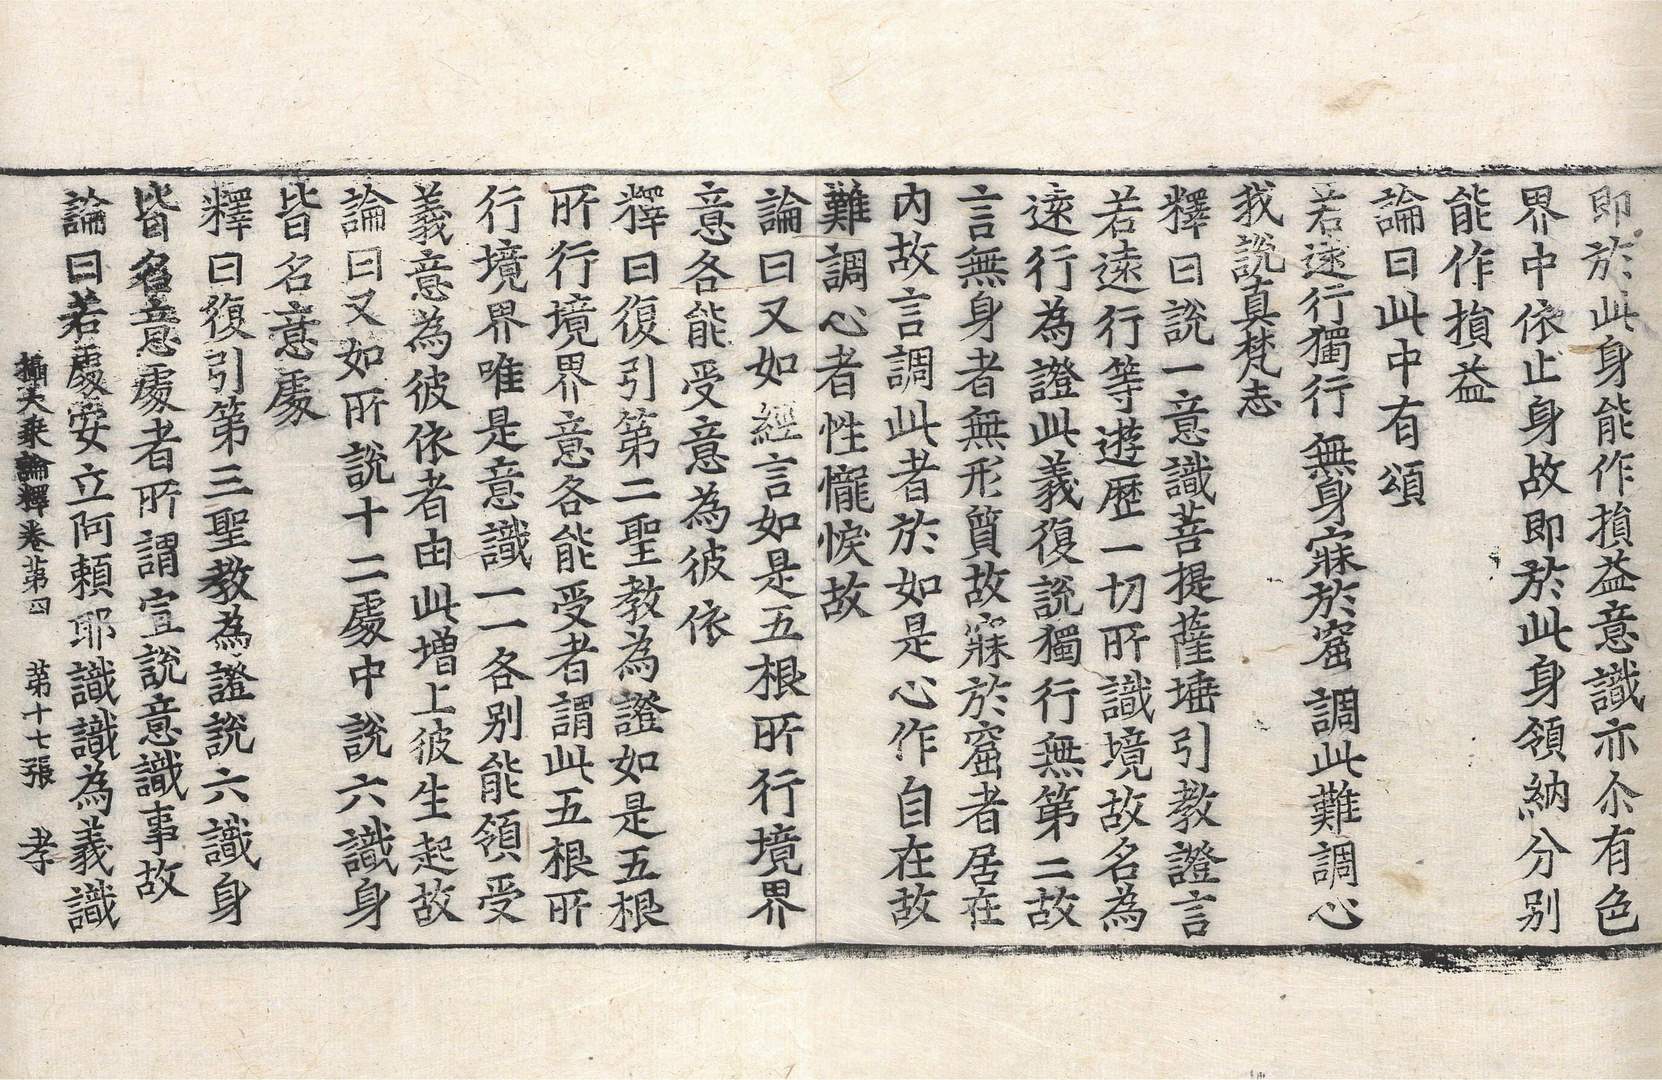 即於此身能作損益意識亦尒有色
界中依止身故即於此身領納分别
能作損益
論曰此中有頌
若遠行獨行 無身寐於窟 調此難調心
我說真梵志
釋曰說一意識菩提薩埵引教證言
若遠行等遊歷一切所識境故名為
遠行為證此義復說獨行無第二故
言無身者無形質故寐於窟者居在
內故言調此者於如是心作自在故
難調心者性㦬悷故
論曰又如經言如是五根所行境界
意各能受意為彼依
釋曰復引第二聖教為證如是五根
所行境界意各能受者謂此五根所
行境界唯是意識一一各别能領受
義意為彼依者由此增上彼生起故
論曰又如所說十二處中說六識身
皆名意處
釋曰復引第三聖教為證說六識身
皆名意處者所謂宣說意識事故
論曰若處安立阿賴耶識識為義識
攝大乘論釋卷第四 第十七張 孝